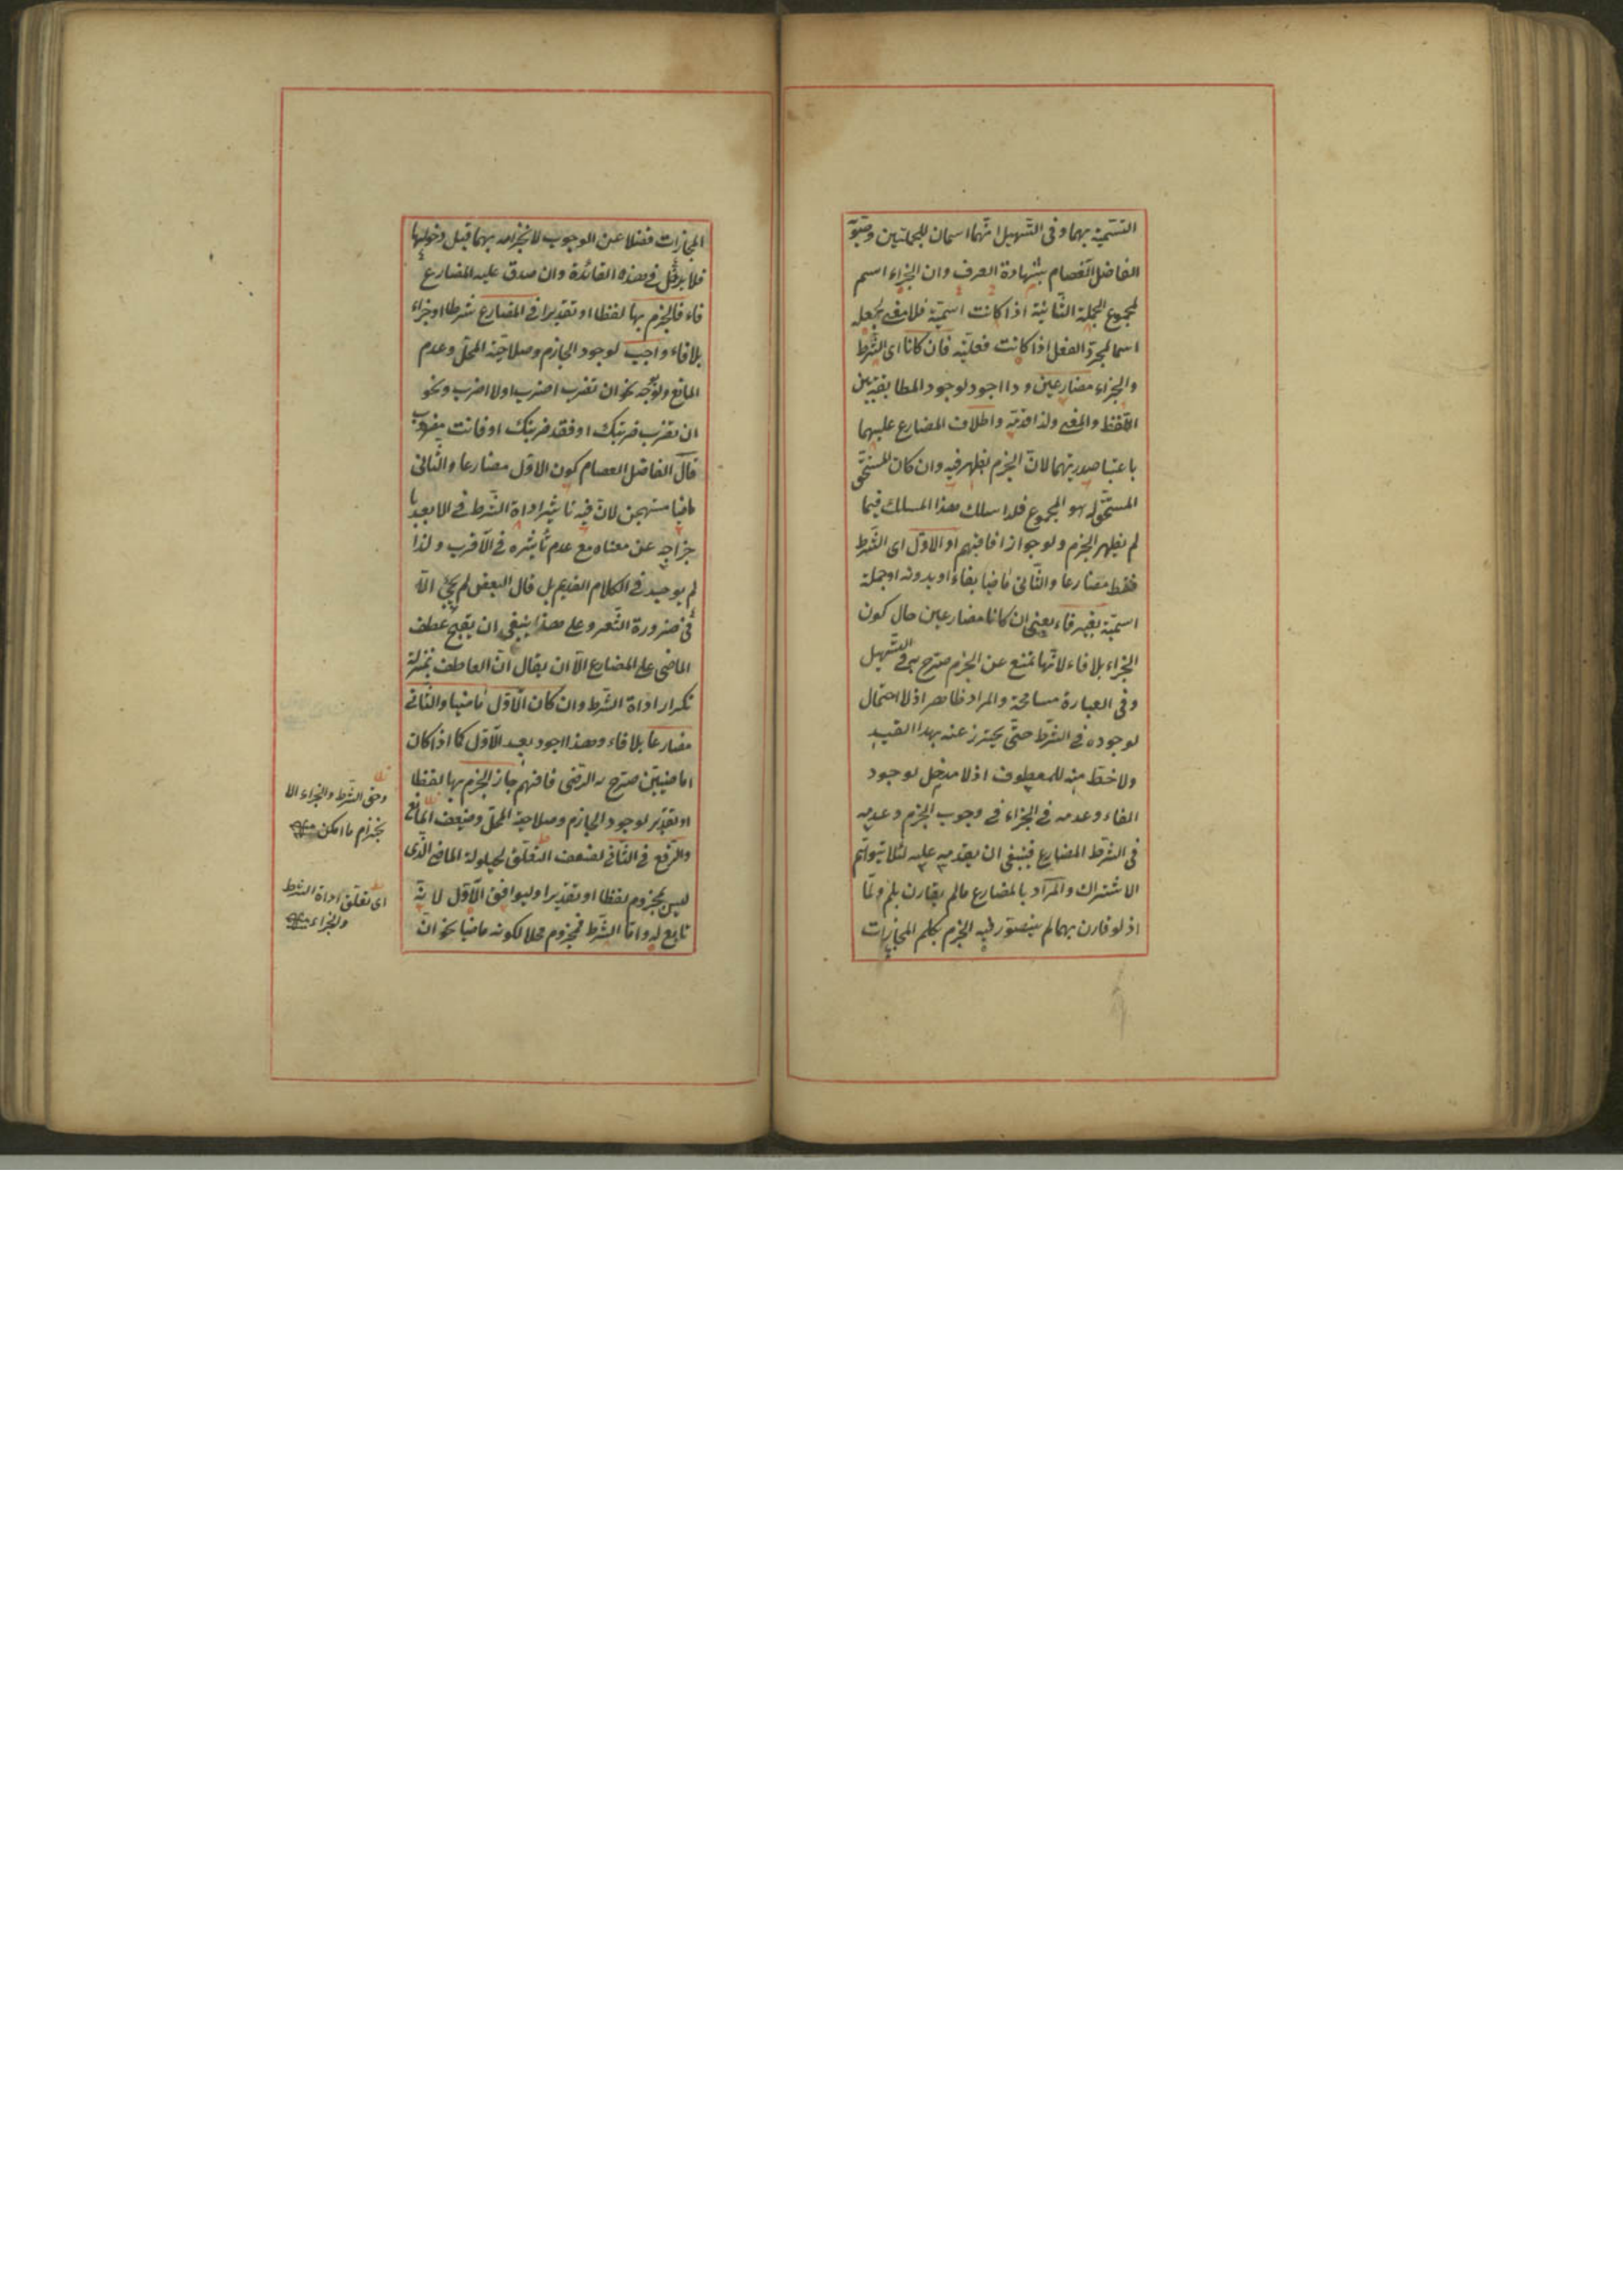 التسمية بهما وفى التسهيل انهما اسمان للجملتين وصوبه
الفاضل العصام بشهادة العرف وان الجزاء اسم
لمجموع الجملة الثانية اذا كانت اسمية فلا معنى لجعله
اسما لمجرد الفعل اذا كانت فعلية فان كانا اى الشرط
والجزاء مضارعين وذا اجود لوجود المطابقتين
اللفظ والمعنى ولذا قدمه واطلاق المضارع عليهما
باعتبار صدريتهما لان الجزم يظهر فيه وان كان المستحق
المستحق له هو المجموع فلذا سلك هذا المسلك فيما
لم يظهر الجزم ولو جوازا فافهم او الاول اى الشرط
فقط مضارعا والثانى ماضيا بفاء او بدونه او جملة
اسمية بغير فاء يعنى ان كانا مضارعين حال كون
الجزاء بلا فاء لانها تمنع عن الجزم صرح به فى التسهيل
وفى العبارة مسامحة والمراد ظاهر اذ لا احتمال
لوجوده فى الشرط حتى يحترز عنه بهذا القيد
ولا حظ منه للمعطوف اذ لا مدخل لوجود
الفاء وعدمه فى الجزاء فى وجوب الجزم وعدمه
فى الشرط المضارع فينبغى ان يقدمه عليه لئلا يتوهم
الاشتراك والمراد بالمضارع مالم يقارن بلم ولما
اذ لو قارن بهما لم يتصور فيه الجزم بكلم المجازات
المجازات فضلا عن الوجوب لانجزامه بهما قبل دخولها
فلا يدخل فى هذه القائدة وان صدق عليه المضارع
فاء فالجزم بها لفظا او تقديرا فى المضارع شرطا او جزاء
بلا فاء واجب لوجود الجازم وصلاحية المحل وعدم
المانع ولوجه نحو ان تضرب اضرب او لا اضرب ونحو
ان تضرب ضربتك او فقد ضربتك او فانت مضروب
قال الفاضل العصام كون الاول مضارعا والثانى
ماضيا مستهجن لان فيه تاثير اداة الشرط فى الابعد
خراجه عن معناه مع عدم تأثيره فى الاقرب ولذا
لم يوجد فى الكلام القديم بل قال البعض لم يجئ الا
فى ضرورة الشعر وعلى هذا ينبغى ان يقبح عطف
الماضى على المضارع الا ان يقال ان العاطف بمنزلة
تكرار اداة الشرط وان كان الاول ماضيا والثانى
مضارعا بلا فاء وهذا اجود بعد الاول كما اذا كان
اماضيين صرح به الرضى فافهم جاز الجزم بها لفظا
او تقدير لوجود الجازم وصلاحية المحل وضعف المانع
والرفع فى الثانى لضعف التعلق لحيلولة الماضى الذى
ليس بمجزوم لفظا او تقديرا وليوافق الاول لانه
تابع له واما الشرط فمجزوم محلا لكونه ماضيا نحو ان
وحق الشرط والجزاء الا
نجزام ما امكن منه
اى تعلق اداة الشرط
والجزاء منه